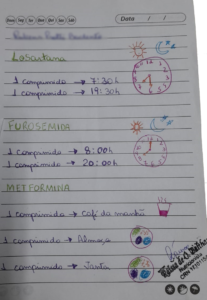 Data / /
Losartana
1 comprimido → 7:30h
1 comprimido → 19:30h
FUROSEMIDA
1 comprimido → 8:00h
1 comprimido → 20:00h
METFORMINA
1 comprimido → Café da manhã
1 comprimido → Almoço
1 comprimido → Janta